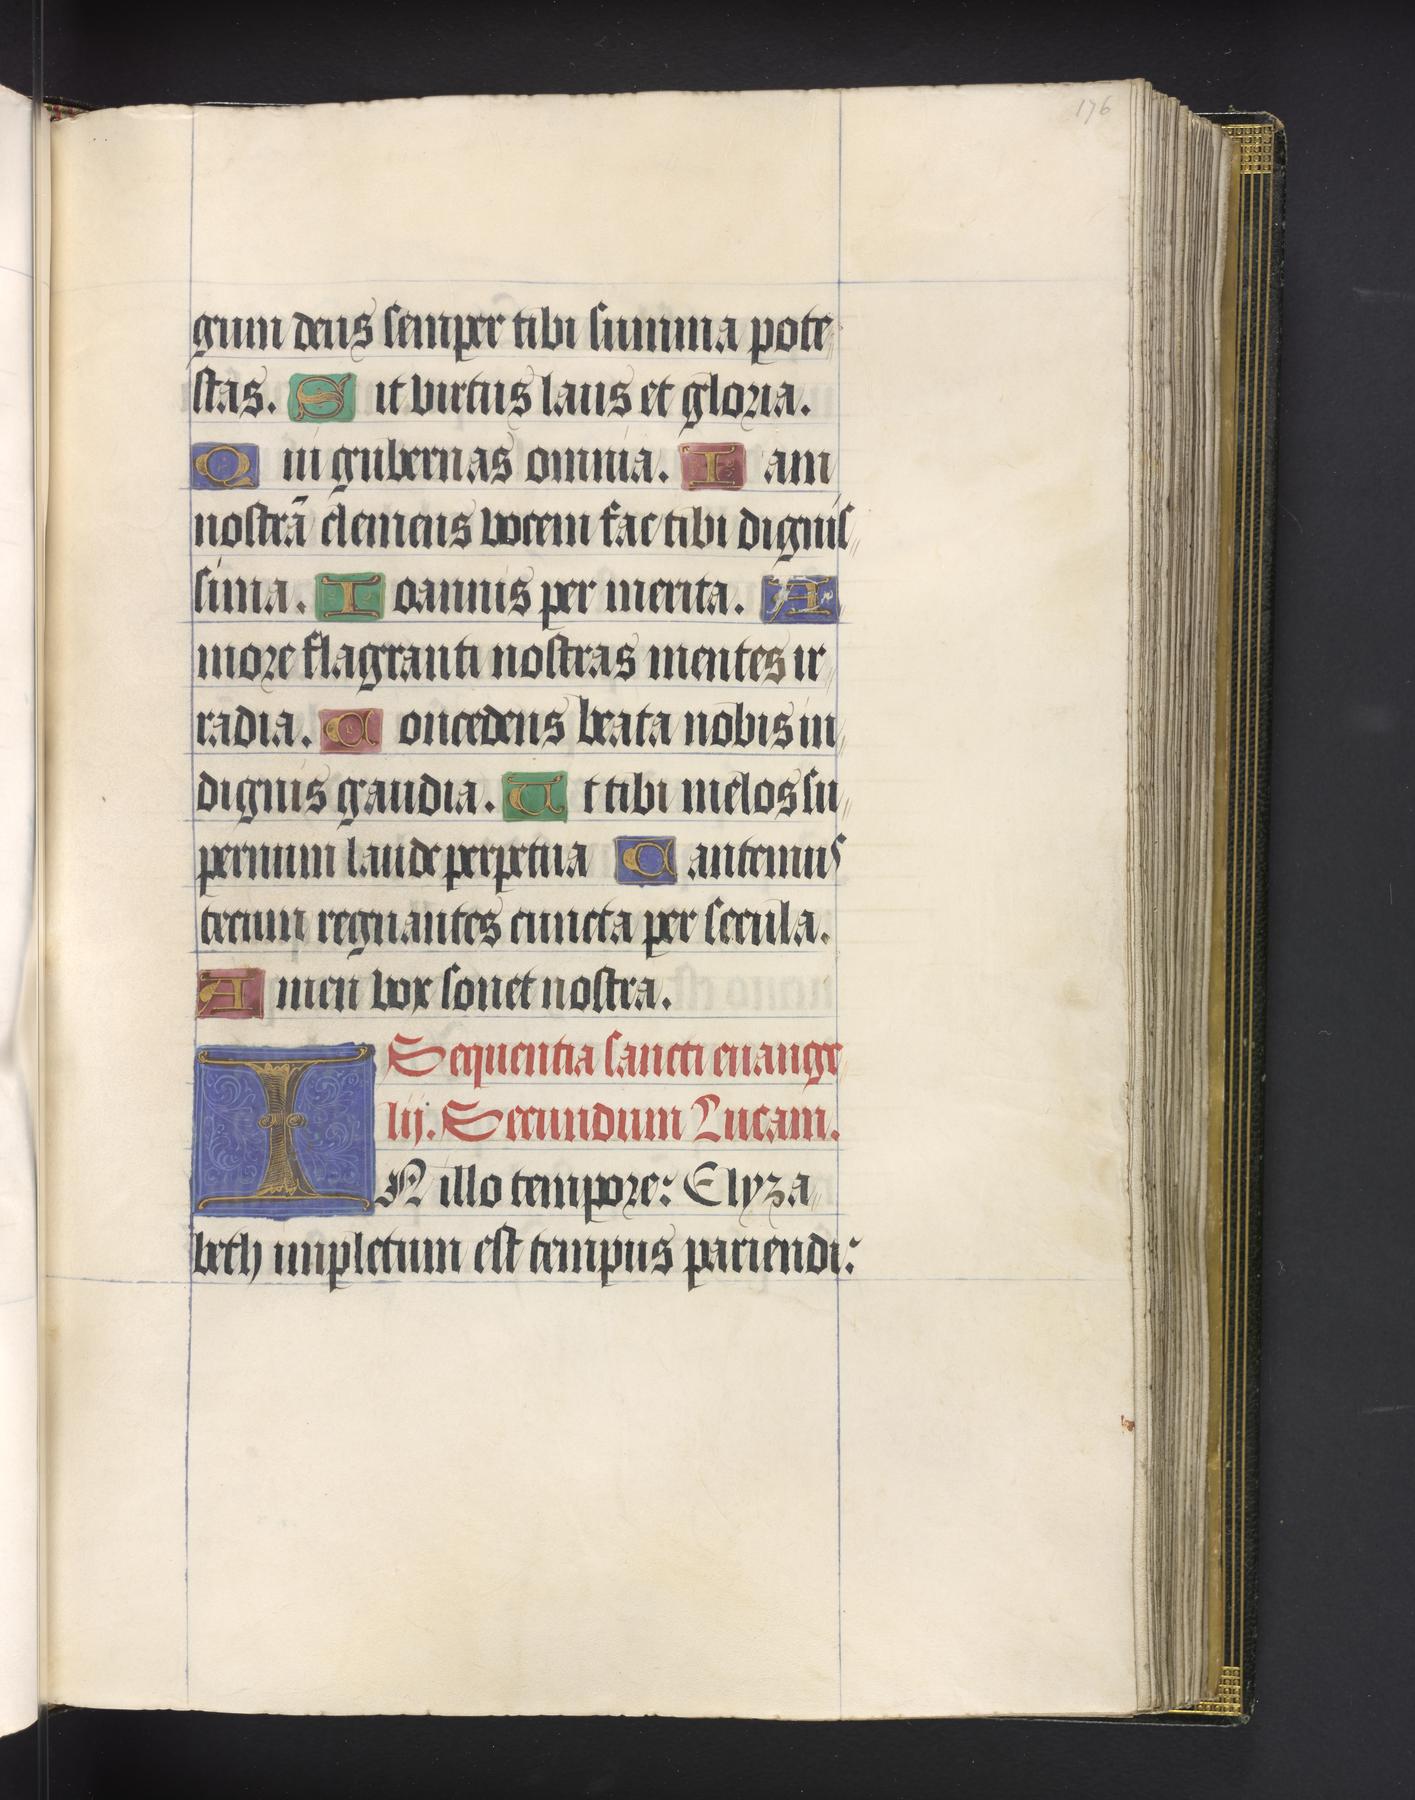 176
gum deus semper tibi summa pote
stas. Sit virtus laus et gloria.
Qui gubernas omnia. Iam
nostrā clemens vocem fac tibi dignis
sima. Ioannis per merita. A
more flagranti nostras mentes ir
radia. Concedens beata nobis in
dignis gaudia. Ut tibi melos su
pernum laude perpetua Cantemus
tecum regnantes cuncta per secula.
Amen vox sonet nostra.
Sequentia sancti euange
lij. Secundum Lucam.
IN illo tempore: Elyza
beth impletum est tempus pariendi: